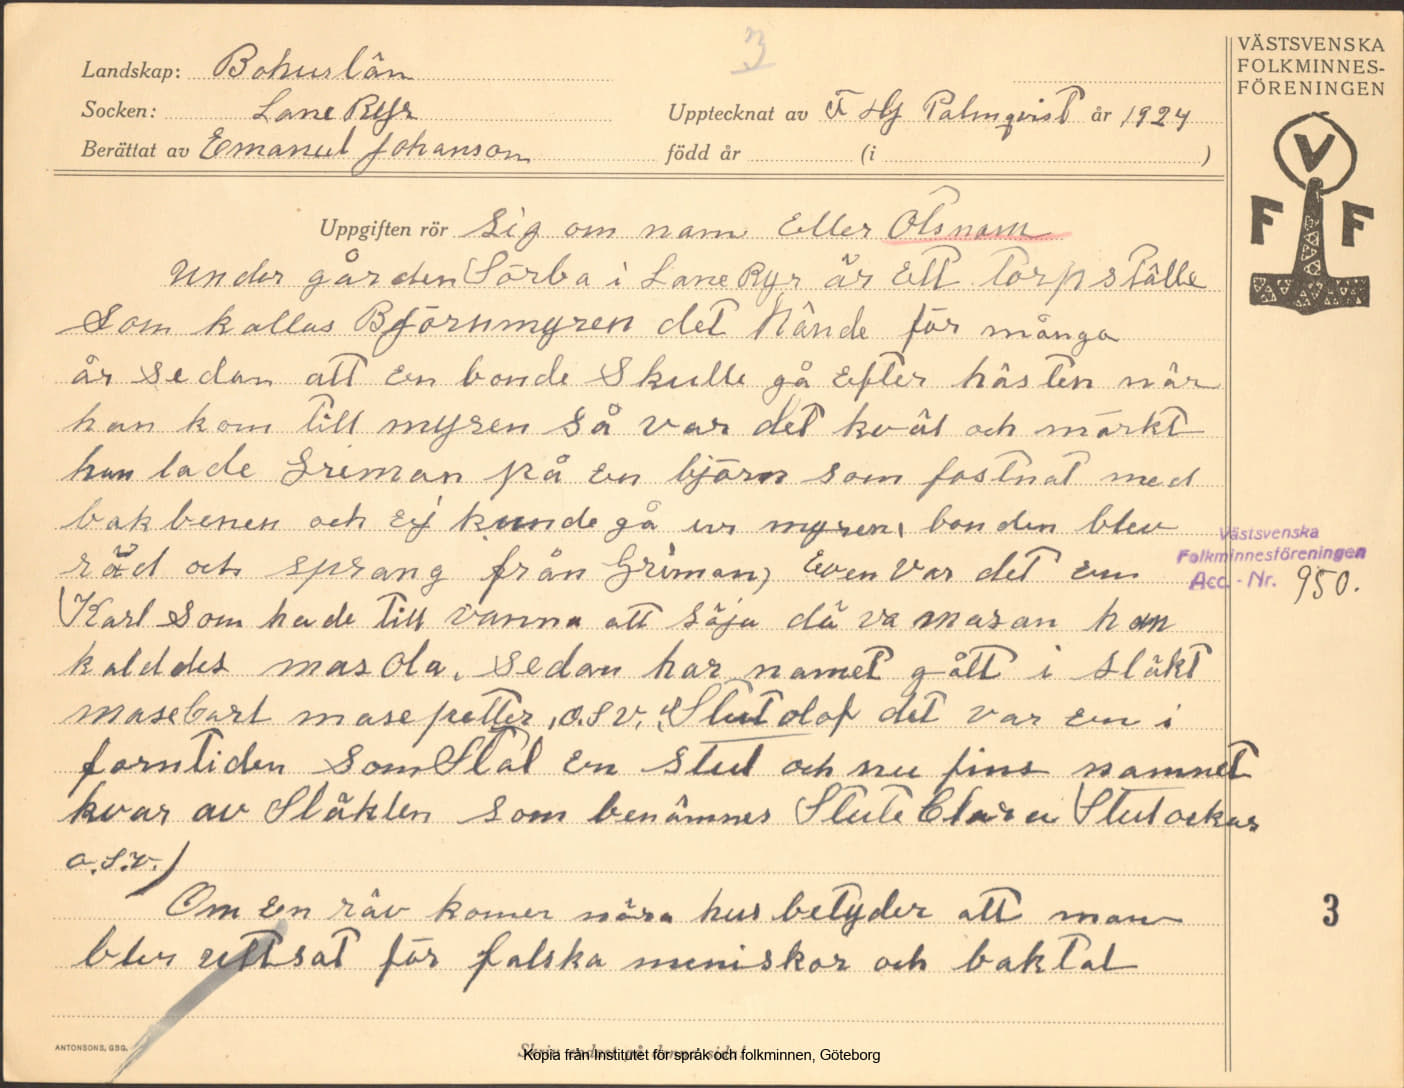 3
Landskap: Bohuslän
Socken: Lane Ryr
Upptecknat av F Hj Palmqvist år 1924
Berättat av Emanuel Johanson
född år (i )
VÄSTSVENSKA
FOLKMINNES-
FÖRENINGEN
V
F F
Uppgiften rör sig om namn Eller Otsnam
Under gården Sörba i Lane Ryr är Ett torpställe
Som kallas Björnmyren det Hände för många
år sedan att En bonde Skulle gå Efter hästen när
han kom till myren så var det kväl och mörkt
han lade Griman på En björn som fastnat med
bakbenen och Ej kunde gå ur myren, bonden blev
räd och sprang från Griman, Even var det En
Karl Som hade till vanna att säja då va masan han
kalddes mas Ola. Sedan har namet gått i släkt
mase Carl mase petter, o.s.v. Stut olof det var En i
forntiden Som Stal En stut och nu fins namnet
kvar av Släkten som benämnes Stute Clara Stut oskar
o.s.v.)
Om En räv komer nära hus betyder att man
blir utsat för falska meniskor och baktal
Västsvenska
Folkminnesföreningen
Acc. - Nr. 950.
3
ANTONSONS, GBG.
Kopia från Institutet för språk och folkminnen, Göteborg